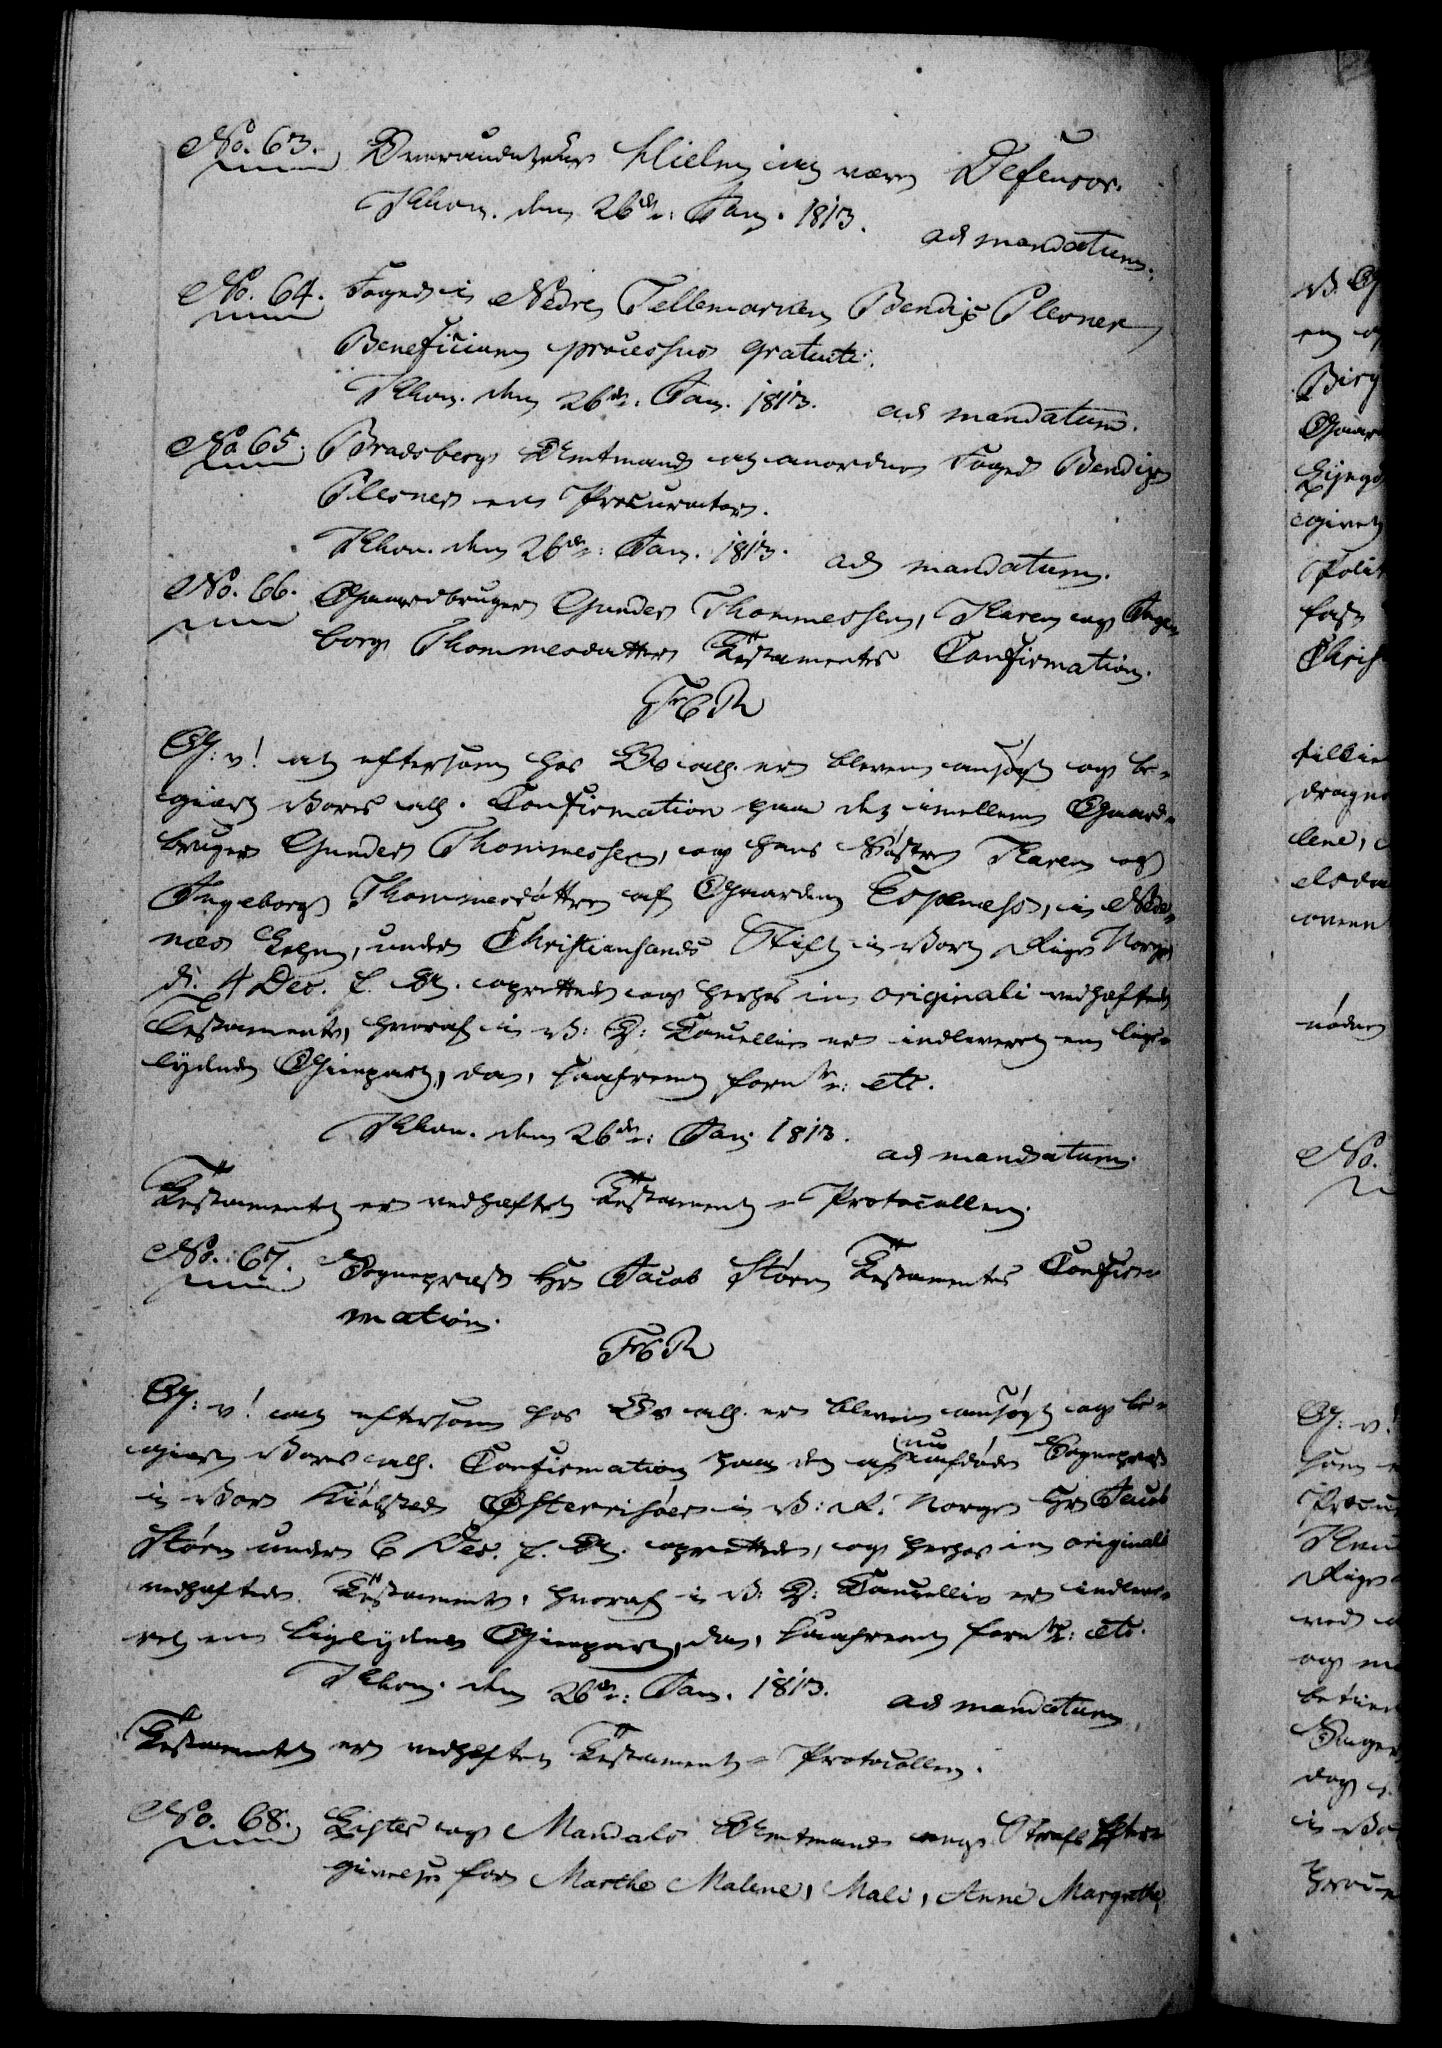 No. 63. Overauditeur Kielen at være Defensor.
Khavn. den 26de: Jan. 1813.
ad mandatum.
No. 64. Foged i Nedre Tellemarken Bendix Plesner
Beneficium processus gratuiti.
Khavn. den 26de. Jan. 1813. ad mandatum.
No 65. Bradsbergs Amtmand at anordne Foged Bendix
Plesner en Procurator.
Khavn. den 26de: Jan. 1813. ad mandatum.
No. 66. Gaardbruger Gunder Thommessen, Karen og Inge-
borg Thommesdatters Testaments Confirmation.
Fr6R
G: v! at eftersom hos Os all. er bleven ansøgt og be-
giært Vores all. Confirmation paa det imellem Gaard-
bruger Gunder Thommessen, og hans Søstre Karen og
Ingeborg Thommesdøttre af Gaarden Espenæss, i Nede-
næs Lehn, under Christiansands Stift i Vort Rige Norge
d. 4 Dec. f. A. oprettede og herhos in originali vedhæftede
Testamente, hvoraf i V: D: Cancellie er indleveret en lige-
lydende Gienpart, da, saafremt forne: etc.
Khavn. den 26de: Jan. 1813.
ad mandatum.
Testamentet er vedhæftet Testament-Protocollen.
No. 67. Sognepræst Hr Jacob Størn Testamentes Confir-
mation.
Fr6R
G: v! at eftersom hos Os all. er bleven ansøgt og be-
giært Vores all. Confirmation paa det af nu afdøde Sognepræst
i Vor Kiøbsted Østerrisøer i V: R: Norge Hr Jacob
Størn under 6 Dec. f. A. oprettede, og herhos in originali
vedhæftede Testamente, hvoraf i V: D: Cancellie er indleve-
ret en ligelydende Gienpart, da, saafremt forne: etc.
Khavn. den 26de: Jan. 1813. ad mandatum
Testamentet er vedhæftet Testament-Protocollen.
No. 68. Lister og Mandals Amtmand Strafs Efter-
givelse for Marthe Malene, Mali, Anne Margrethe,